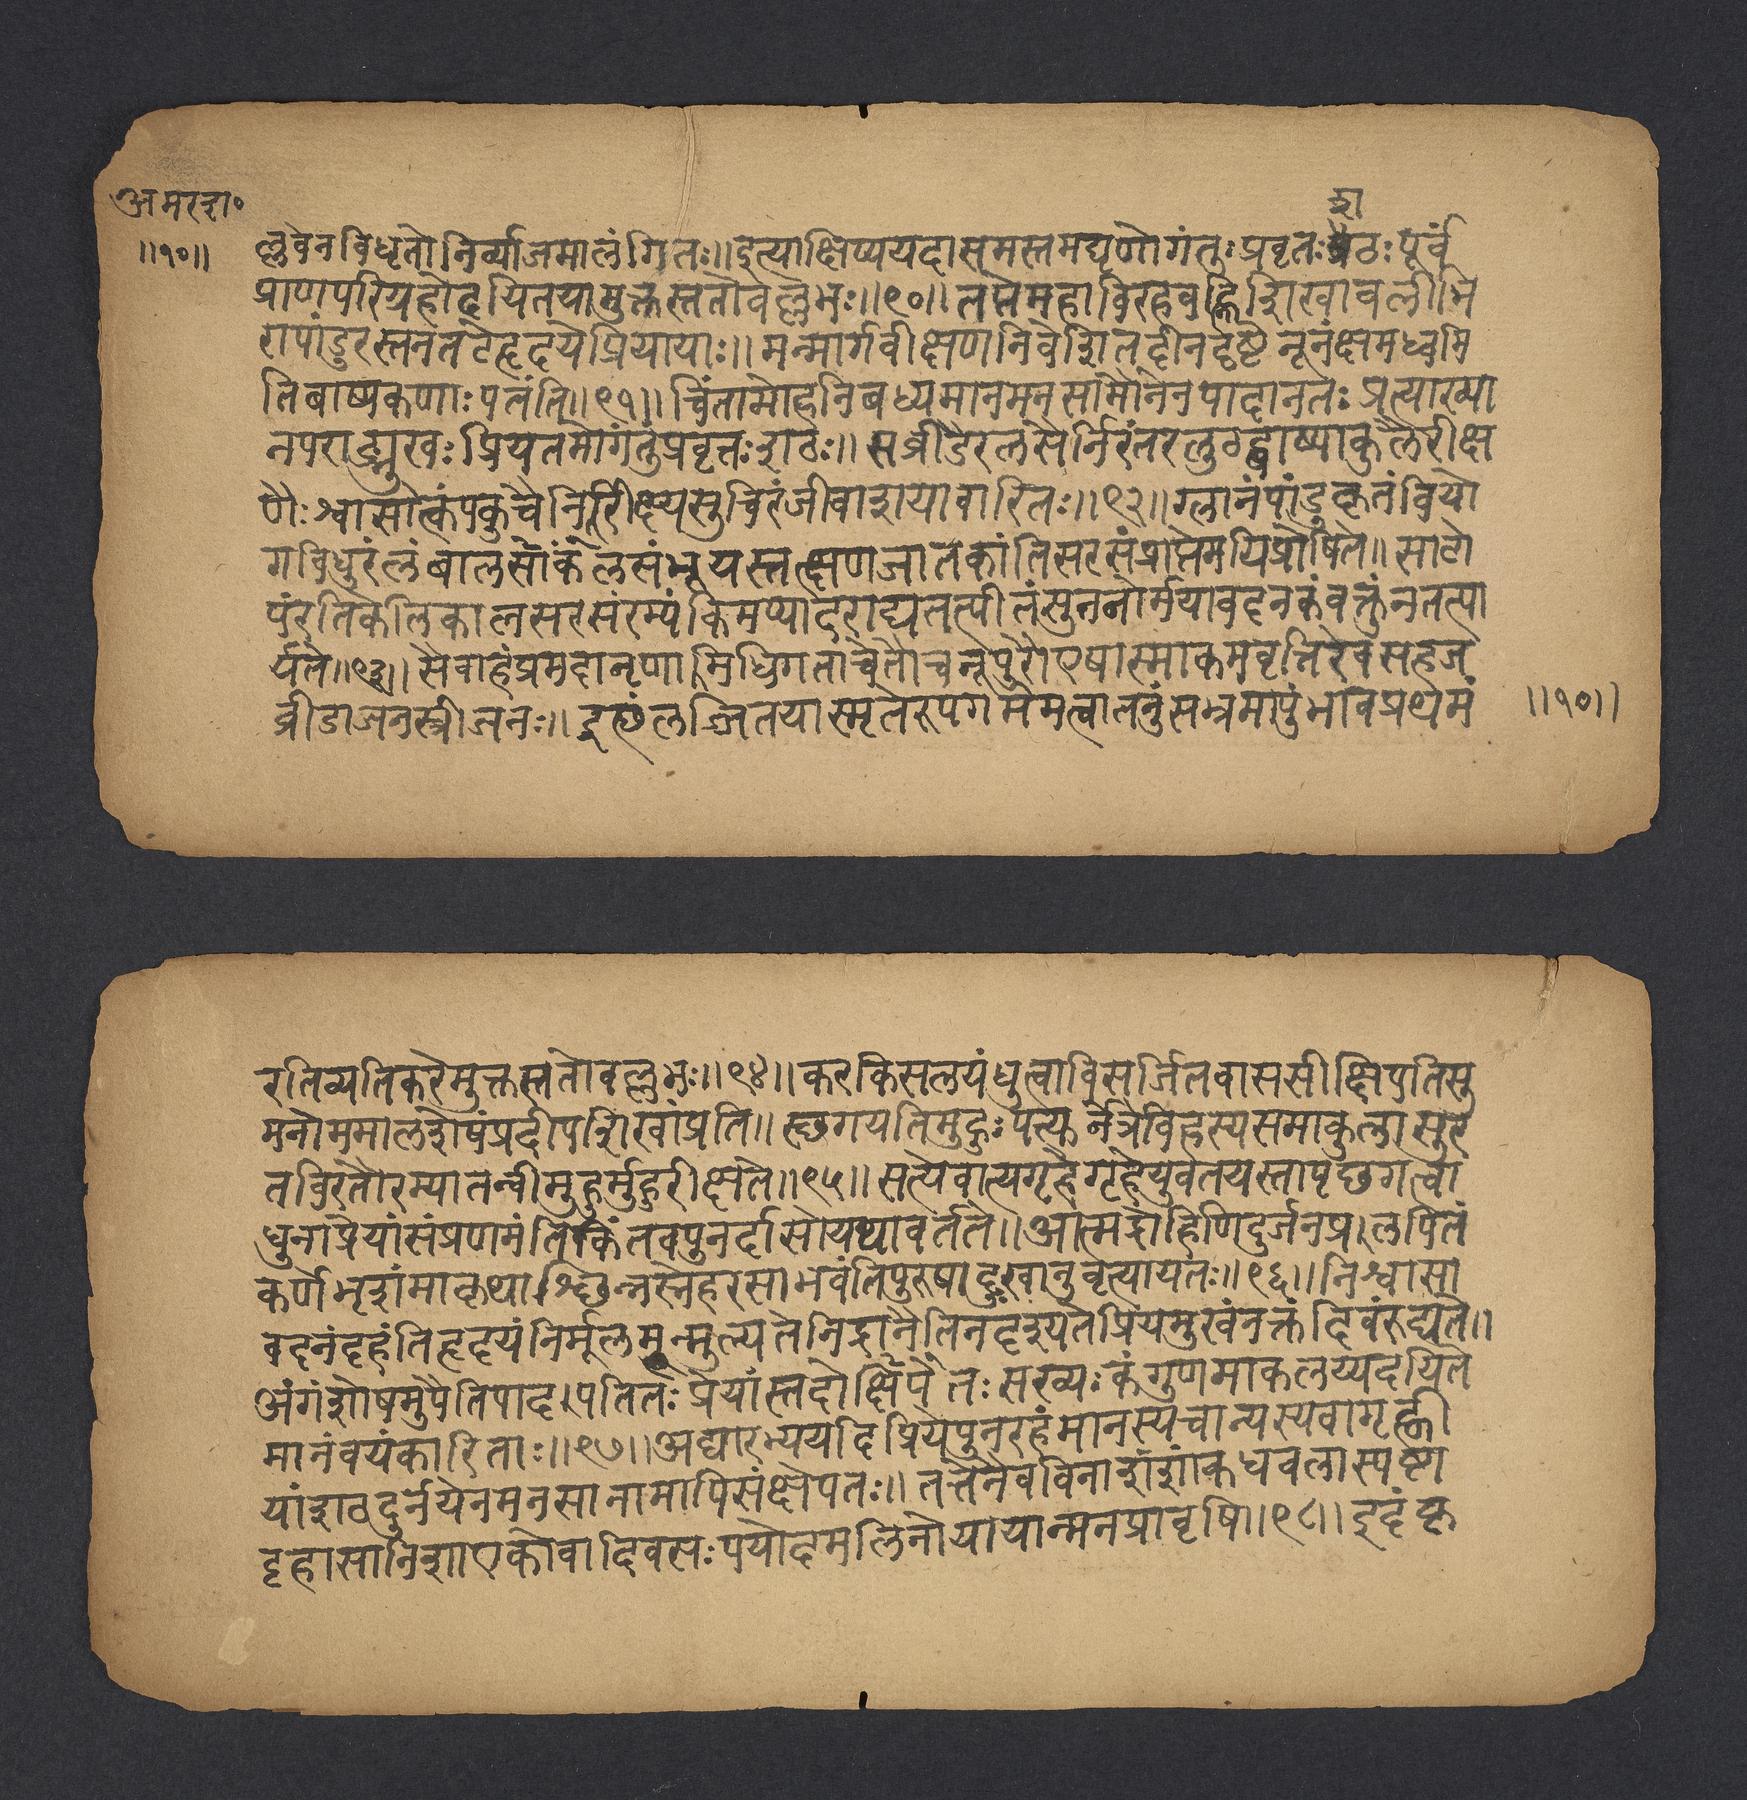 अमरश०
॥१०॥
शा
ल्लवेन विधृतो निर्व्याजमालंगितः॥ इत्याक्षिप्य यदा समस्तमघृणो गंतुः प्रवृतः ठः पूर्वं
प्राणपरिग्रहो दयितया मुक्तस्ततो वल्लभः॥९०॥ तप्ते महाविरहवह्निशिखावलीभि
रापांडुरस्तनतटे हृदये प्रियायाः॥ मन्मार्गवीक्षणनिवेशितदीनदृष्टे नूनं क्षमध्वमि
ति बाष्पकणाः पतंति॥९१॥ चिंतामोहनिबध्यमानमनसा मौनेन पादानतः प्रत्याख्या
नपराङ्मुखः प्रियतमो गंतुं प्रवृत्तः शठः॥ सव्रीडैरलसैर्निरंतरलुठद्बाष्पाकुलैरीक्ष
णैः श्वासोत्कंपकुचे निरीक्ष्य सुचिरं जीवाशया वारितः॥९२॥ म्लानं पांडु कृतं वियो
गविधुरं लंबालसांकेलसं भूयस्तत्क्षणजातकांति सरसं प्राप्ते मयि प्रोषिते॥ साटो
पं रतिकेलिकालसरसं रम्यं किमप्यादराद्यत्पीतं सुतनोर्मया वदनकं वक्तुं न तत्पा
र्यते॥९३॥ सैवाहं प्रमदा नृणामधिगतावेतौ च नूपुरौ एषास्माकमवृत्तिरेव सहज
व्रीडाजनस्त्रीजनः॥ इत्थं लज्जितया स्मृतेरुपगमे मत्वा तनुं सम्भ्रमापुंभावप्रथमं
॥१०॥
रतिव्यतिकरे मुक्तस्ततो वल्लभः॥९४॥ करकिसलयं धुत्वा विसर्जितवाससी क्षिपति सु
मनोममालशेषं प्रदीपशिखां प्रति॥ स्छगयति मुहुः पत्युर्नेत्रे विहस्य समाकुला सुर
तविरतौ रम्या तन्वी मुहुर्मुहुरीक्षते॥९५॥ सत्येवात्यगृहे गृहे युवतयस्ता पृछ गत्वा
धुना प्रेयांसं प्रणमंति किं तव पुनर्दासो यथा वर्तते॥ आत्मद्रोहिणि दुर्जनप्रलपितं
कर्णे भृशं मा कृथाश्छिन्नस्नेहरसा भवंति पुरुषा दुःखानुवृत्यायतः॥९६॥ निश्वासा
वदनं दहंति हृदयं निर्मूलमुन्मुल्यते निद्रा नैति न दृश्यते प्रियमुखं नक्तंदिवं रुद्यते॥
अंगं शोषमुपैति पादपतितः प्रेयांस्तदोक्षिपे तः सख्यः कं गुणमाकलय्य दयिते
मानं वयं कारिताः॥९७॥ अद्यारभ्य यदि प्रिये पुनरहं मानस्य चान्यस्य वा गृह्णी
यां शठदुर्नयेन मनसा नामापि संक्षेपतः॥ तत्तेनैव विना शशांकधवलास्पष्टा
ट्टहासा निशा एको वा दिवसः पयोदमलिनो यायान्मन प्रावृषि॥९८॥ इदं कृ